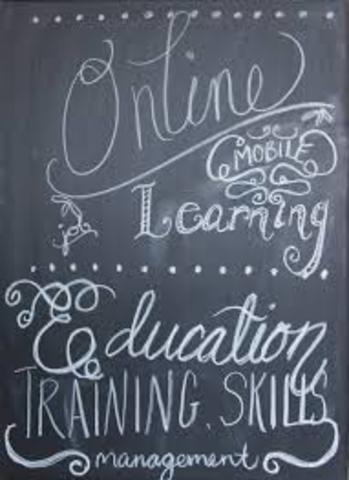 Online
MOBILE
Learning
Education
TRAINING, SKILLS
management